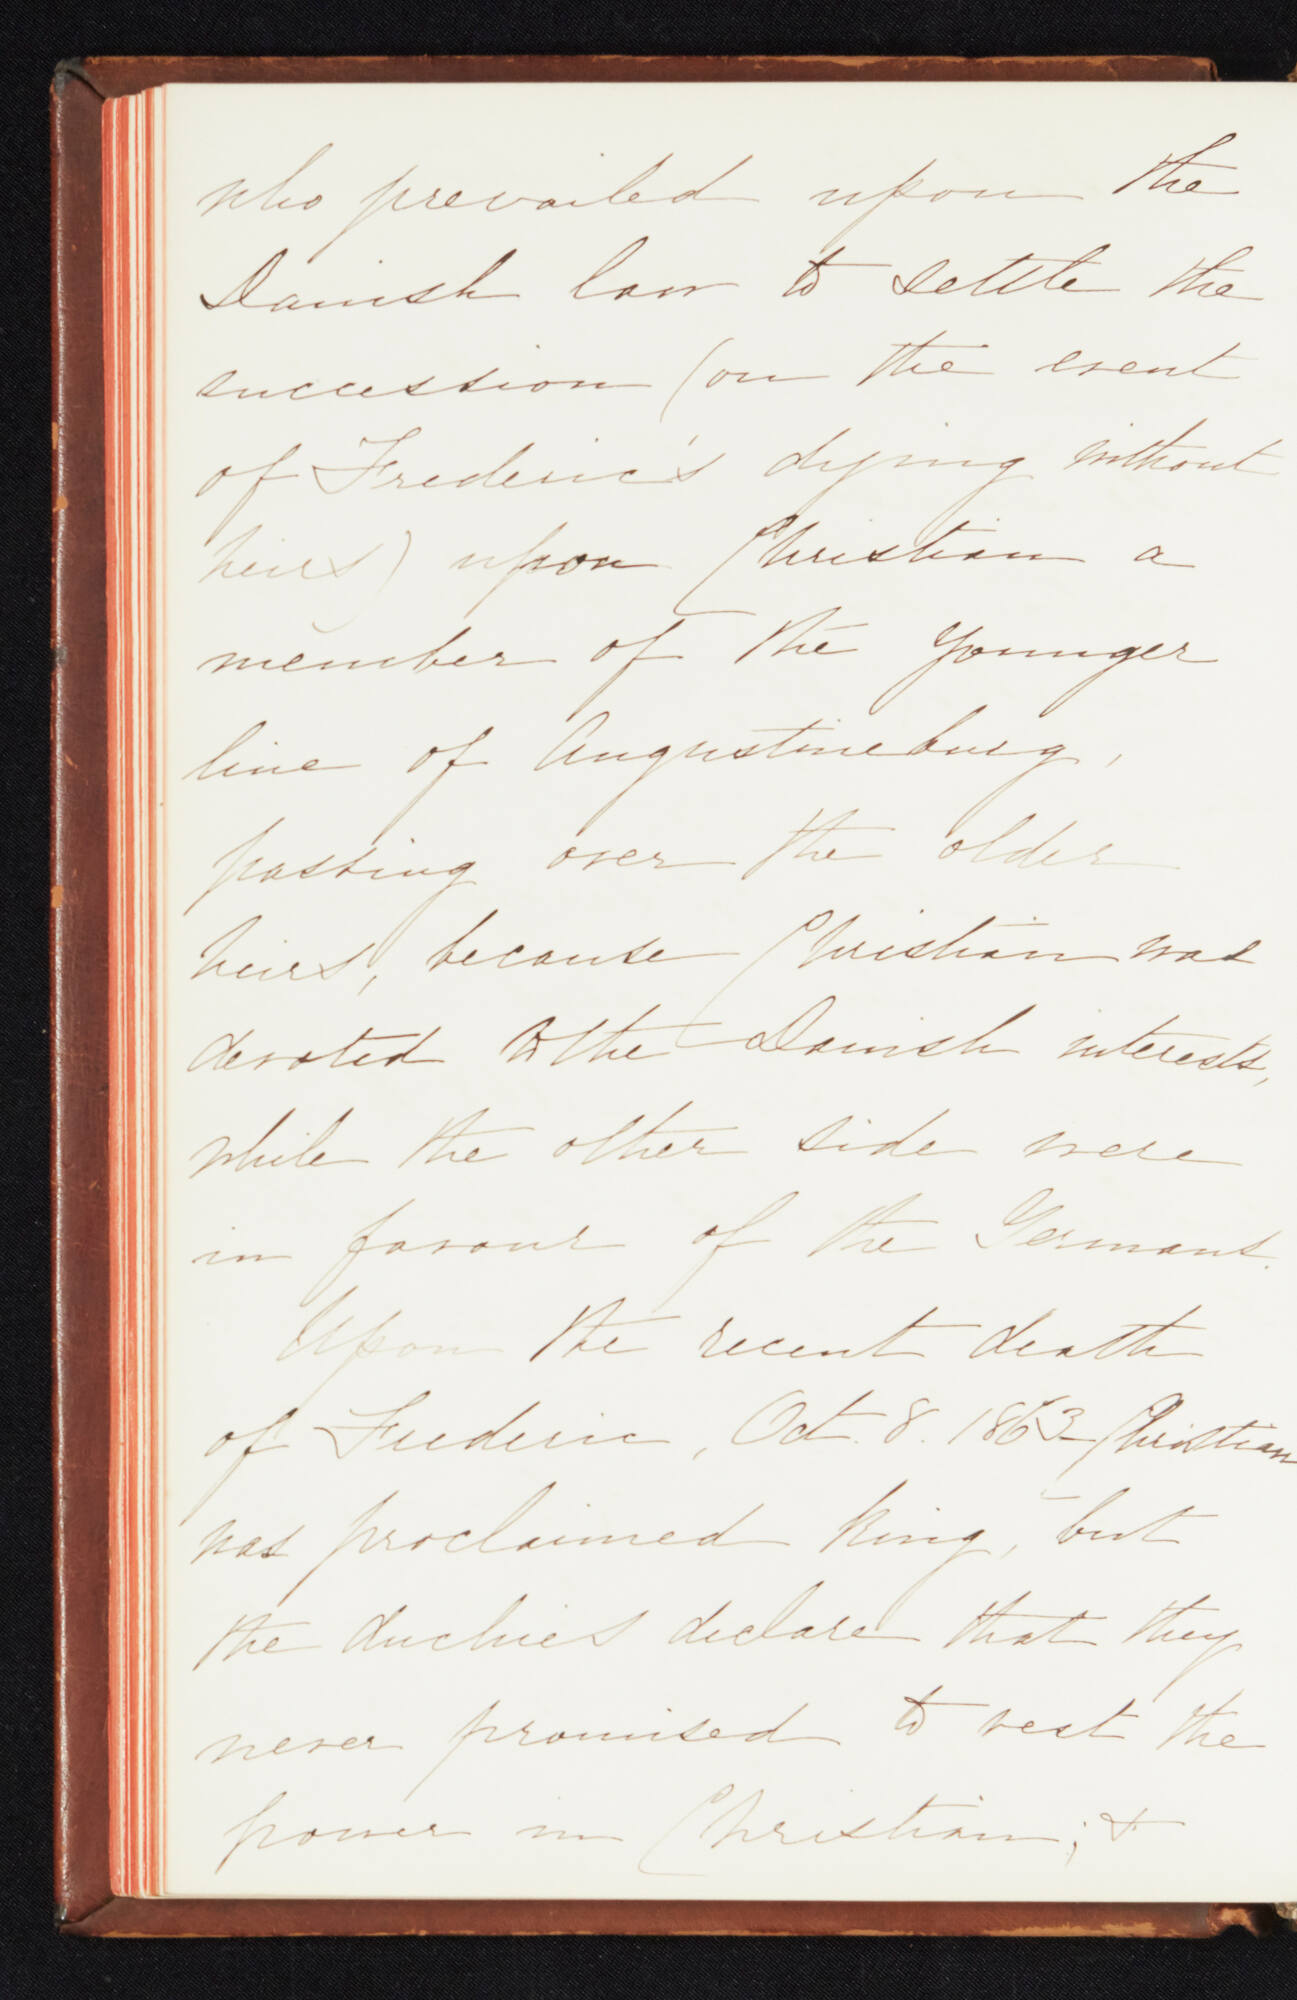 who prevailed upon the
Danish law to settle the
succession (on the event
of Frederic's dying without
heirs) upon Christian a
member of the younger
line of Augustineburg,
passing over the older
heirs, because Christian was
devoted to the Danish interests,
while the other side were
in favour of the Germans.
Upon the recent death
of Frederic, Oct. 8. 1863 Christian
was proclaimed King, but
the duchies declare that they
never promised to vest the
power in Christian; &